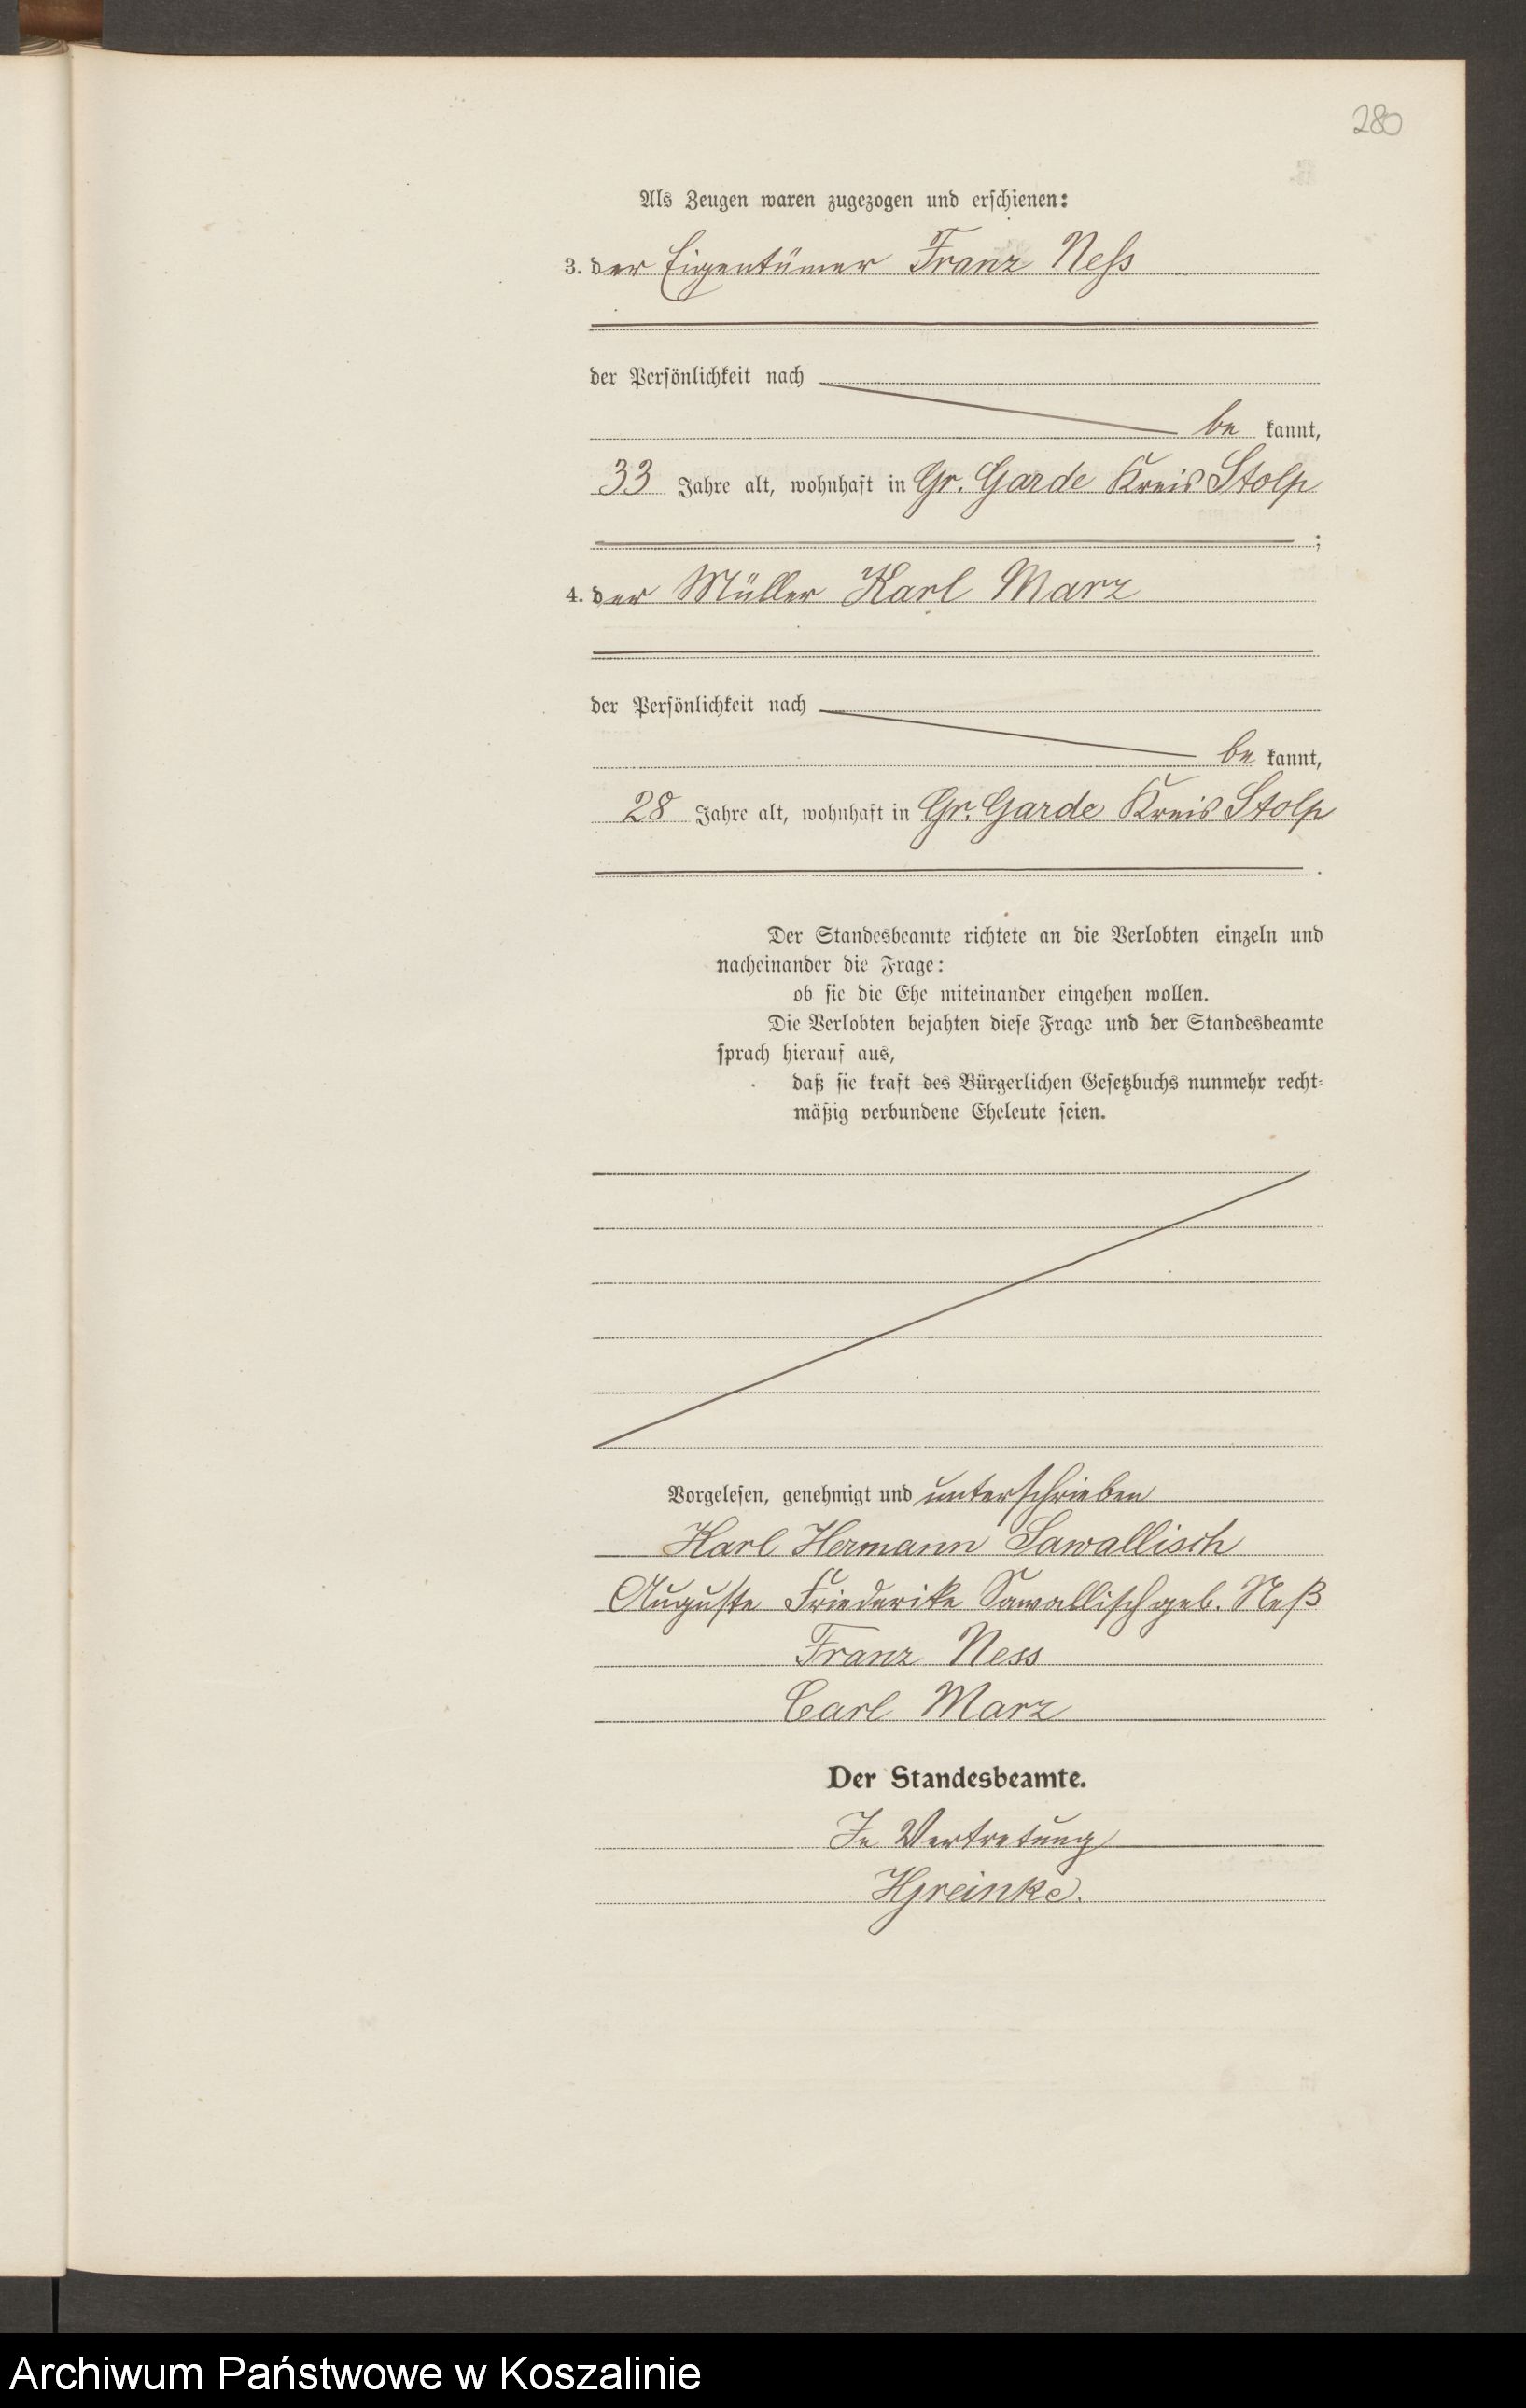 280
Als Zeugen waren zugezogen und erschienen:
3. der Eigentümer Franz Neſs
der Persönlichkeit nach
be kannt,
33 Jahre alt, wohnhaft in Gr. Garde Kreis Stolp
;
4. der Müller Karl Marz
der Persönlichkeit nach
be kannt,
28 Jahre alt, wohnhaft in Gr. Garde Kreis Stolp
.
Der Standesbeamte richtete an die Verlobten einzeln und
nacheinander die Frage:
ob sie die Ehe miteinander eingehen wollen.
Die Verlobten bejahten diese Frage und der Standesbeamte
sprach hierauf aus,
daß sie kraft des Bürgerlichen Gesetzbuchs nunmehr recht-
mäßig verbundene Eheleute seien.
Vorgelesen, genehmigt und unterschrieben
Karl Hermann Sawallisch
Auguste Friederike Sawallisch geb. Neß
Franz Ness
Carl Marz
Der Standesbeamte.
In Vertretung
HGreinke.
Archiwum Państwowe w Koszalinie